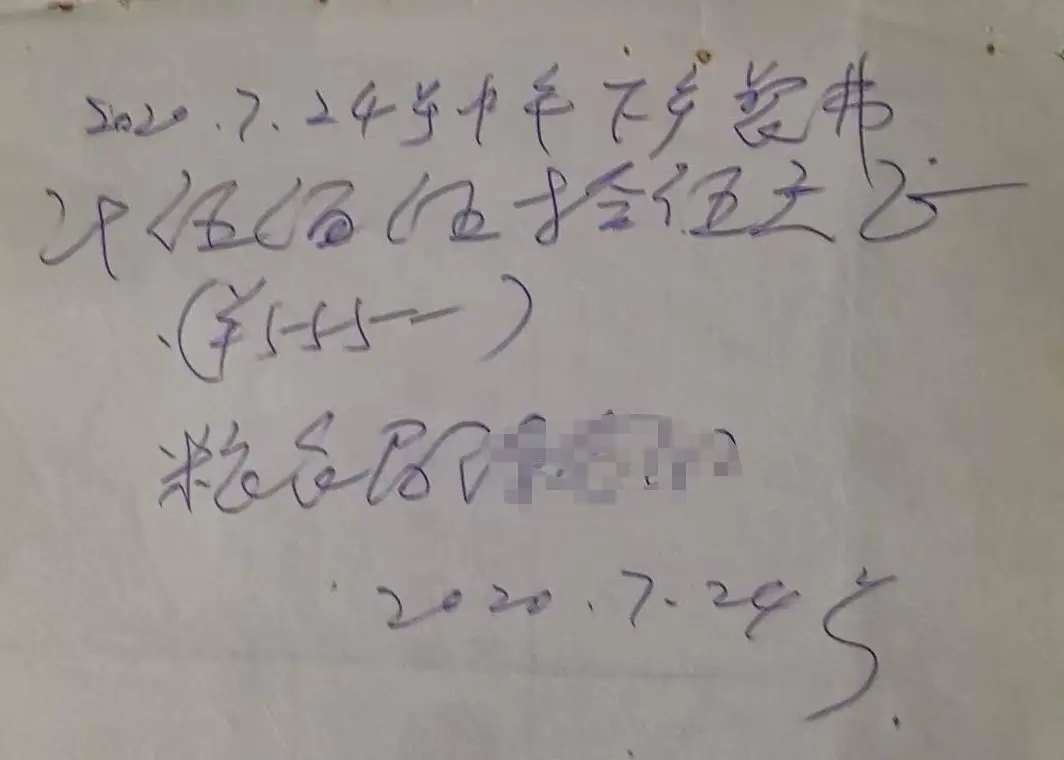 2020.7.24号中午下乡餐费
计伍佰伍拾伍元正
(¥555—)
粮食局
2020.7.24号